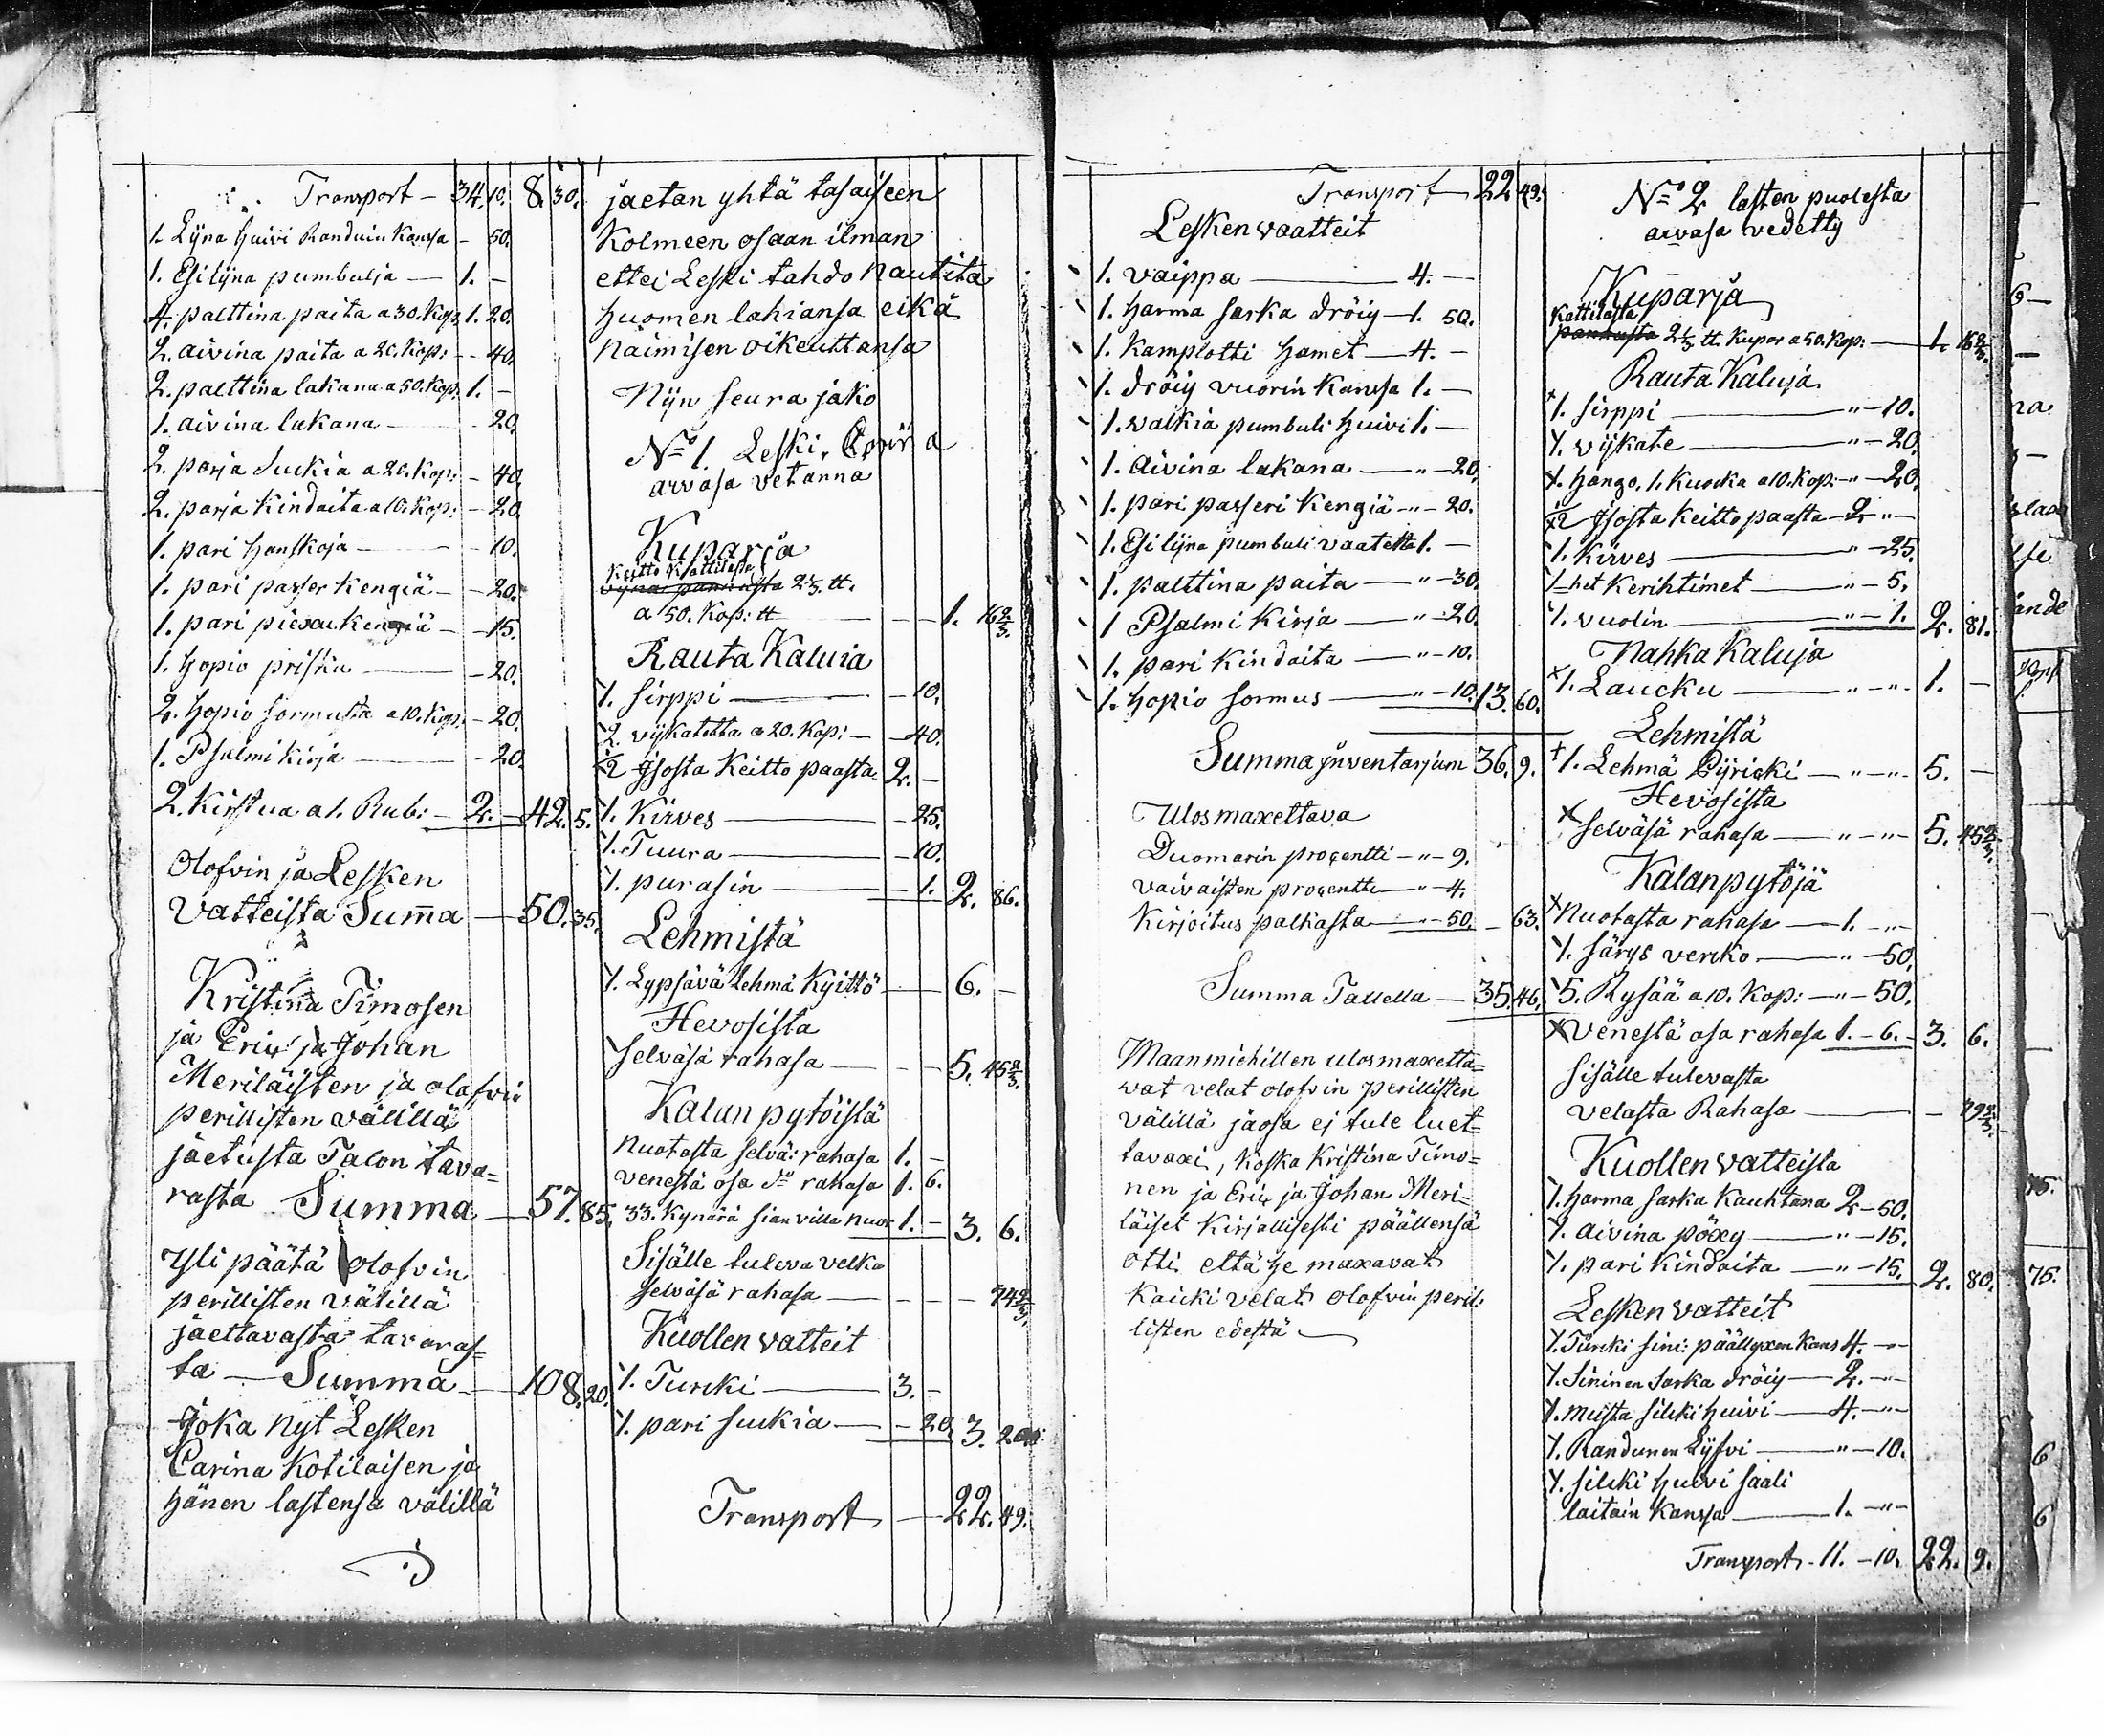 Transport — 34. 10. 8. 30.
1. Lijna Huivi Randuin Kansa — 50.
1. Esilijna pumbulja — 1. —
4. palttina paita a 30. Kop: 1. 20.
2. aivina paita a 20. Kop: — 40.
2. palttina lakana a 50. Kop: 1. —
1. aivina lakana — 20.
2. parja Suckia a 20. Kop: — 40.
2. parja Kindaita a 10. Kop: — 20.
1. pari Hanskoja — 10.
1. pari passer Kengiä — 20.
1. pari Kengiä — 15.
1. Hopio prisku — 20.
2. Hopio Sormusta a 10. Kop: — 20.
1. Psalmikirja — 20.
2. Kirstua a 1. Rub: — 2. — 42. 5.
Olofvin ja Lesken
Vatteista Sum̄a — 50. 35.
Kristina Timosen
ja Eric ja Johan
Meriläisten ja olofvin
perillisten välillä
jaetusta Talon tava=
rasta Summa — 57. 85.
Yli päätä olofvin
perillisten välillä
jaettavasta tavaras=
ta — Summa — 108. 20.
Joka nyt Lesken
Carina Kotilaisen ja
hänen lastensa välillä
jaetan yhtä tasaiseen
Kolmeen osaan ilman
ettei Leski tahdo nautita
Huomen lahiansa eikä
Naimisen oikeuttansa
Nijn seura jako
No 1. Leski
arvasa vetänna
Kuparja
Keitto Kattilasta
2⅓. tt.
a 50. Kop: tt — 1. 16⅔.
Rauta Kaluia
1. Sirppi — 10.
2. vijkatetta a 20. Kop: — 40.
½ Isosta Keitto paasta 2. —
1. Kirves — 25.
1. Tuura — 10.
1. purasin — 1. 2. 86.
Lehmistä
1. Lypsävä Lehmä Kyittö — 6. —
Hevosista
Selväsä rahasa — 5. 45⅔.
Kalun pytöistä
Nuotasta selvä: rahasa 1. —
venestä osa do rahasa 1. 6.
33. Kynärä sian villa nuot 1. — 3. 6.
Sisälle tuleva velka
selväsä rahasa — 74⅔.
Kuollen vatteit
1. Turcki — 3. —
1. pari suckia — 20. 3. 20.
Transport — 22. 49.
Transport 22 49.
Lesken vaatteit
1. vaippa — 4. —
1. Harma Sarka dröiy — 1. 50.
1. Kamplotti Hamet — 4. —
1. dröiy vuorin Kanssa 1. —
1. valkia pumbuli Huivi 1. —
1. Aivina lakana — " — 20.
1. pari passeri Kengiä — " — 20.
1. Esilijna pumbuli vaatetta 1. —
1. palttina paita — " — 30.
1 Psalmi Kirja — " — 20.
1. pari Kindaita — " — 10.
1. Hopio Sormus — " — 10. 13. 60.
Summa inventarjum 36. 9.
Ulosmaxettava
Duomarin procentti — " — 9.
vaivaisten procentti — " — 4.
Kirjoitus palkasta — " — 50. — 63.
Summa Tallella — 35. 46.
Maanmiehillen ulosmaxetta=
vat velat olofvin perillisten
välillä jaosa ej tule luet=
tavaxi, Koska Kristina Timo=
nen ja Eric ja Johan Meri=
läiset Kirjallisesti päällensä
otti että he maxavat
Kaicki velat olofvin peril:
listen edestä
No 2 lasten puolesta
arvasa vedetty
Kuparja
Kattilasta
pannusta 2⅓ tt. Kupar a 50. Kop: — 1. 16⅔.
Rauta Kaluja
1. Sirppi — " — 10.
1. vijkate — " — 20.
1. Hango. 1. Kuocka a 10. Kop: — " — 20.
½ Isosta Keitto paasta — 2 " —
1. Kirves — " — 25.
1 — het Kerihtimet — " — 5.
1. vuolin — " — 1. 2. 81.
Nahka Kaluja
1. Laucku — " — " — 1. —
Lehmistä
1. Lehmä Pyricki — " — " — 5. —
Hevosista
selväsä rahasa — " — " — 5. 45⅔.
Kalanpytöjä
Nuotasta rahasa — 1. — " —
1. Särys vercko — " — 50.
5. Rysää a 10. Kop: — " — 50.
Venestä osa rahasa 1. — 6. — 3. 6.
Sisälle tulevasta
velasta Rahasa — 79⅔.
Kuollen vatteista
1. Harma Sarka Kauhtana 2 — 50.
1. aivina pöxy — " — 15.
1. pari Kindaita — " — 15. 2. 80.
Lesken vatteit
1. Turcki sini: päällyxen Kans 4. — " —
1. Sininen Sarka dröiy — 2. — " —
1. Musta silcki Huivi — 4. — " —
1. Randunen Lijfvi — " — 10.
1. silcki Huivi saali
laitain Kanssa — 1. — " —
Transport. 11. — 10. 22. 9.